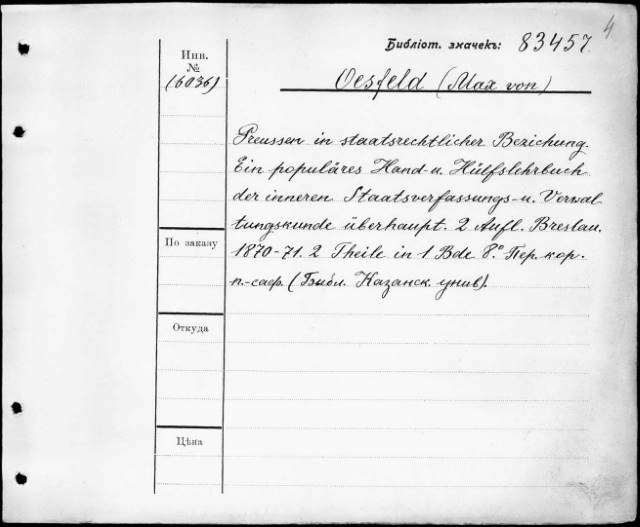 4
Библіот. значекъ: 83457.
Инв.
№
(6036)
Oesfeld (Max von)
Preussen in staatsrechtlicher Beziehung.
Ein populäres Hand- u. Hülfslehrbuch
der inneren Staatsverfassungs- u. Verwal-
tungskunde überhaupt. 2 Aufl. Breslau.
1870-71. 2 Theile in 1 Bde 8.° Пер. кор.
п.-саф. (Библ. Казанск. унив).
По заказу
Откуда
Цѣна